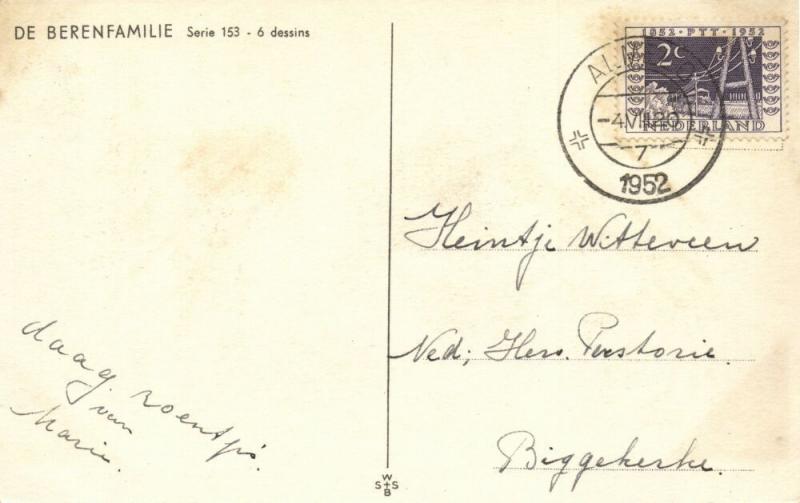 DE BERENFAMILIE Serie 153 - 6 dessins
1852 · PTT · 1952
2c
NEDERLAND
-4 VII 20
7
1952
Heintje Witteveen
Ned; Herv. Pastorie.
Biggekerke.
daag. zoentjes.
van
Marie.
W
S S
B